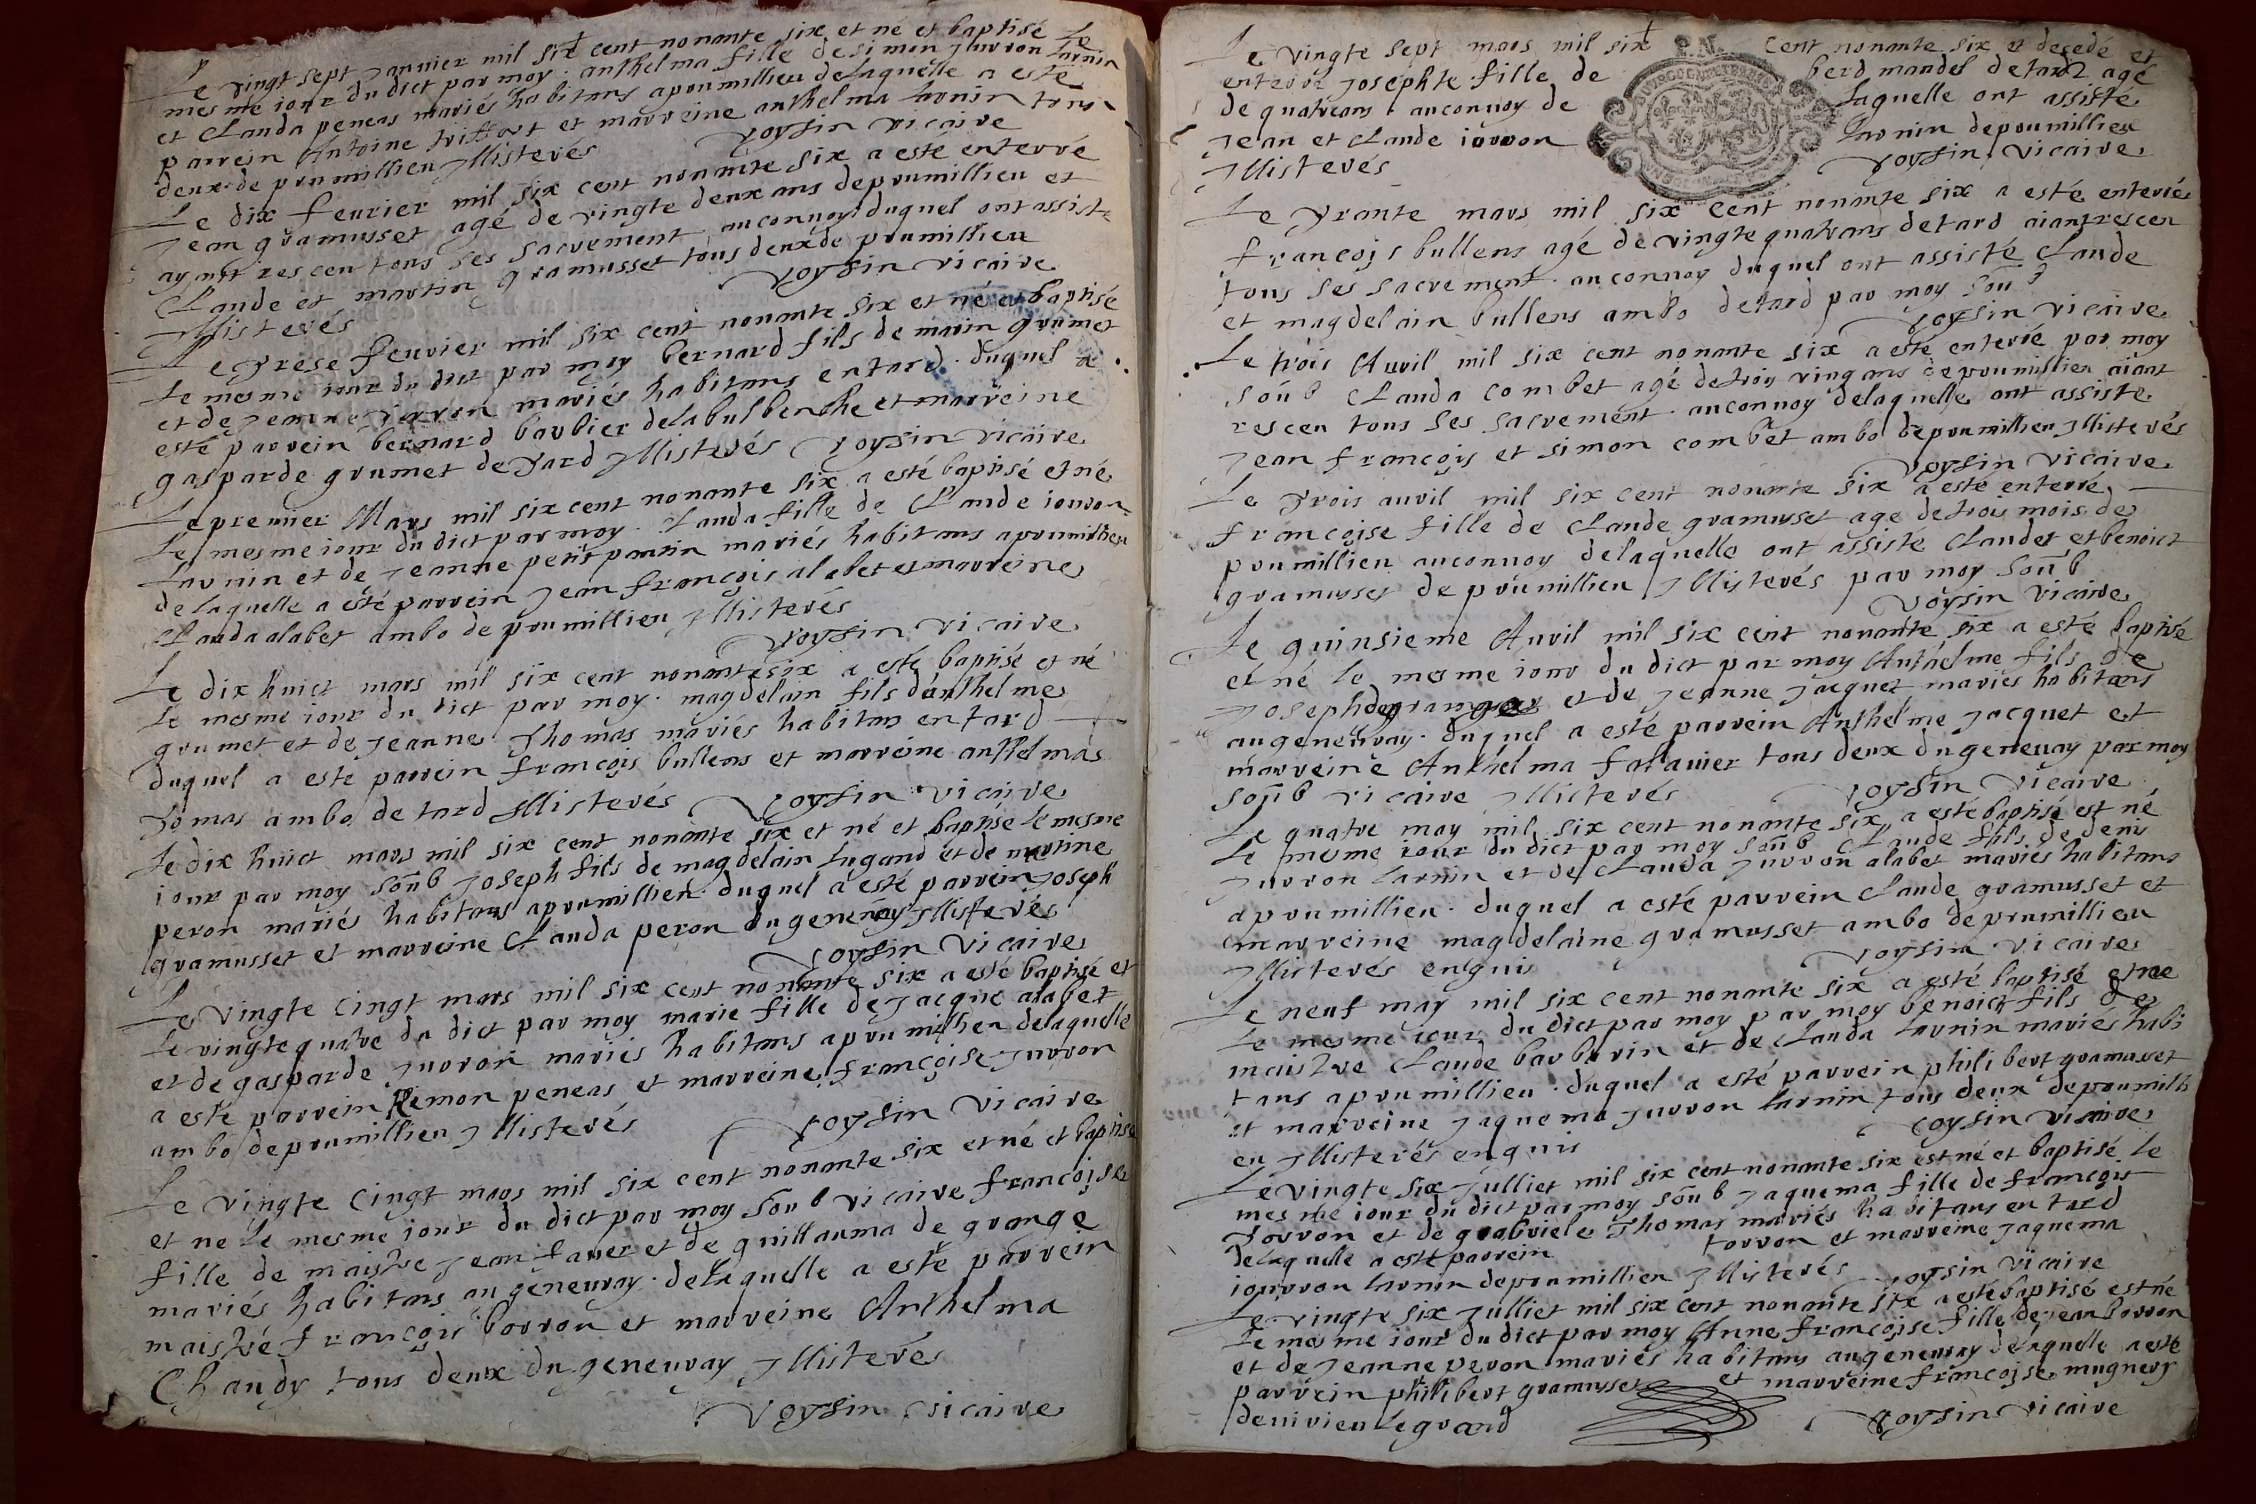 Le vingt sept Janvier mil six cent nonante six et né et baptisé Le
mesme iour du dict par moy. anthelma fille de simon Juvron Larnin
et Clauda peneas mariés habitans a proumillieu de laquelle a esté
parrein Antoine et marreine anthelma Larnin tous
deux de proumillieu Illisterés Voysin vicaire
Le dix feuvrier mil six cent nonante six a esté enterré
Jean gramusset agé de vingte deux ans de proumillieu et
ayant resceu tous ses sacrement auconvoy duquel ont assisté
Claude et martin gramusset tous deux de proumillieu
Illisterés Voysin vicaire
Le trese feuvrier mil six cent nonante six et né et baptisé
Le mesme iour du dict par moy bernard fils de marin grumet
et de Jeanne mariés habitans en tard. duquel a
esté parrein bernard barbier de la bulbenche et marreine
gasparde grumet de tard Illisterés Voysin vicaire
Le premier Mars mil six cent nonante six a esté baptisé et né
Le mesme iour du dict par moy. Clauda fille de Claude iouvron
Larnin et de Jeanne petit pantin mariés habitans a proumillieu
de laquelle a esté parrein Jean françois alabet et marreine
Clauda alabet ambo de proumillieu Illisterés
Voysin vicaire
Le dix huict mars mil six cent nonante six a esté baptisé et né
Le mesme iour du dict par moy. magdelain fils d'anthelme
grumet et de Jeanne Thomas mariés habitans en tard
duquel a esté parrein françois bullens et marreine anthelmas
Tomas ambo de tard Illisterés Voysin vicaire
Le dix huict mars mil six cent nonante six et né et baptisé le mesme
iour par moy soub Joseph fils de magdelain Lugand et de martine
peron mariés habitans a proumillieu. duquel a esté parrein Joseph
gramusset et marreine Clauda peron du genevray Illisterés
Voysin vicaire
Le vingte cingt mars mil six cent nonante six a esté baptisé et
Le vingte quatre du dict par moy marie fille de Jacque alabet
et de gasparde Juvron mariés habitans a proumillieu de laquelle
a esté parrein simon peneas et marreine françoise Juvron
ambo de proumillieu Illisterés Voysin vicaire
Le vingte cingt mars mil six cent nonante six et né et baptisé
et ne Le mesme iour du dict par moy soub vicaire françoise
fille de maistre Jean faver et de guillauma de grange
mariés habitans au genevray. de laquelle a esté parrein
maistre françois borron et marreine Anthelma
Chandy tous deux du genevray Illisterés
Voysin vicaire
Le vingte sept mars mil six cent nonante six et desedé et
enterré Josephte fille de berd mandel de tard agé
de quatreans auconvoy de laquelle ont assisté
Jean et Claude iouvron Larnin de proumillieu
Illisterés Voysin vicaire
P.N.
Le trante mars mil six cent nonante six a esté enterrés
françois bullens agé de vingte quatrans de tard aiant resceu
tous ses sacrement. auconvoy duquel ont assisté Claude
et magdelain bullens ambo de tard par moy soub
Voysin vicaire
Le trois Avril mil six cent nonante six a esté enterré par moy
soub Clauda combet agé de trois vingans de proumillieu aiant
resceu tous ses sacrement. auconvoy de laquelle ont assiste
Jean françois et simon combet ambo de proumillieu Illisterés
Voysin vicaire
Le trois avril mil six cent nonante six a este enterré
françoise fille de Claude gramusset age de trois mois de
proumillieu auconvoy de laquelle ont assisté Claudet et benoict
gramusset de proumillieu Illisterés par moy soub
Voysin vicaire
Le quinsieme Avril mil six cent nonante six a esté baptisé
et né le mesme iour du dict par moy Antaelme fils de
Joseph degranger et de Jeanne Jacquet mariés habitans
augenevray. duquel a esté parrein Anthelme Jacquet et
marreine Anthelma faravier tous deux du genevay par moy
soub vicaire Illisterés Voysin vicaire
Le quatre may mil six cent nonante six a esté baptisé est né
Le mesme iour du dict par moy soub Claude fils de deni
Juvron Larnin et de Clauda Juvron alabet mariés habitans
aproumillieu. duquel a esté parrein Claude gramusset et
marreine magdelaine gramusset ambo de proumillieu
Illisterés enquis Voysin vicaire
Le neuf may mil six cent nonante six a esté baptisé et ne
Le mesme iour du dict par moy par moy benoict fils de
maistre Claude barbarin et de Clauda Larnin mariés habi
tans a proumillieu. duquel a esté parrein philibert gramusset
et marreine Jaquema Juvron Larnin tous deux de proumilli
eu Illisterés enquis Voysin vicaire
Le vingte six Julliet mil six cent nonante six est né et baptisé le
mesme iour du dict par moy soub Jaquema fille de françois
Torron et de grabriele Thomas mariés habitans en tard
de laquelle a esté parrein torron et marreine Jaquema
iouvron Larnin de proumillieu Illisterés Voysin vicaire
Le vingte six Julliet mil six cent nonante six a esté baptisé est né
Le mesme iour du dict par moy Anne françoise fille de Jean borron
et de Jeanne peron mariés habitans augenevray de laquelle a esté
parrein philibert gramusset et marreine françoise mugnery
de vivieu Legrand Voysin vicaire